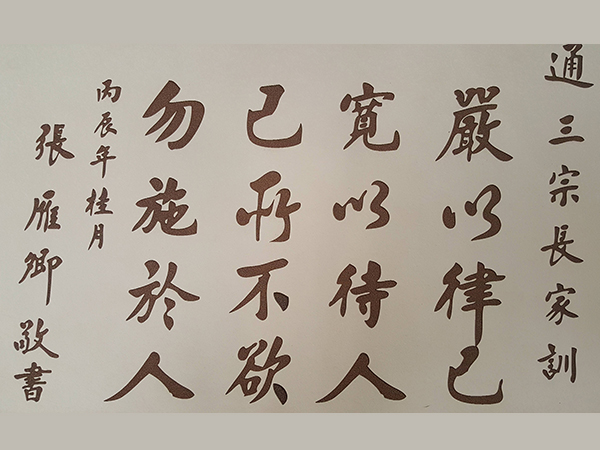 通三宗長家訓
嚴以律己
寬以待人
己所不欲
勿施於人
丙辰年桂月
張雁卿敬書